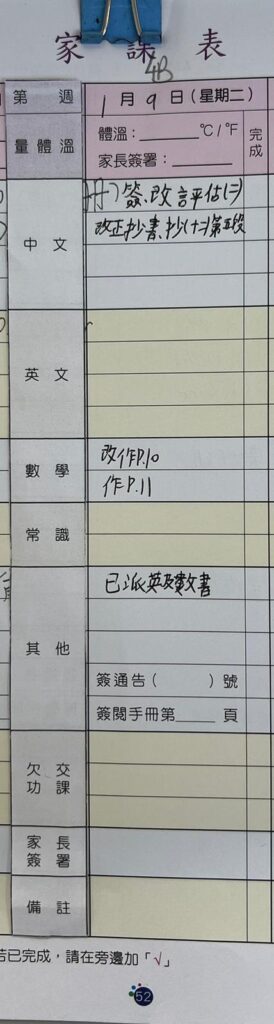 家課表
4B
第 週 1月9日(星期二)
量體溫 體溫：______℃/℉ 完成
家長簽署：______
中文 冊)簽、改評估(二)
改正抄書、抄(十二)第五段
英文
數學 改作P.10
作P.11
常識
其他 已派英及數書
簽通告( )號
簽閱手冊第____頁
欠交功課
家長簽署
備註
若已完成，請在旁邊加「√」
52